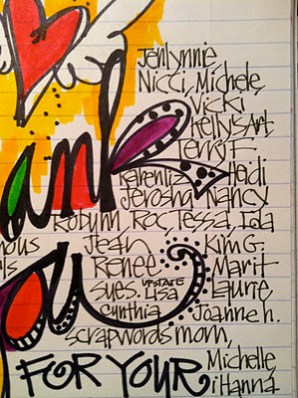 Jenlynnie,
Nicci, Michele,
Vicki
Kelly's Art,
Terry F.
ank
Karenliz Heidi
Jerosha Nancy
Robynn Roc, Tessa, Ida
Jean Kim G.
Renee Marit
upstate
sues. Lisa Laurie,
Cynthia Joanne h.
scrapwords mom,
FOR YOUR Michelle
iHanna